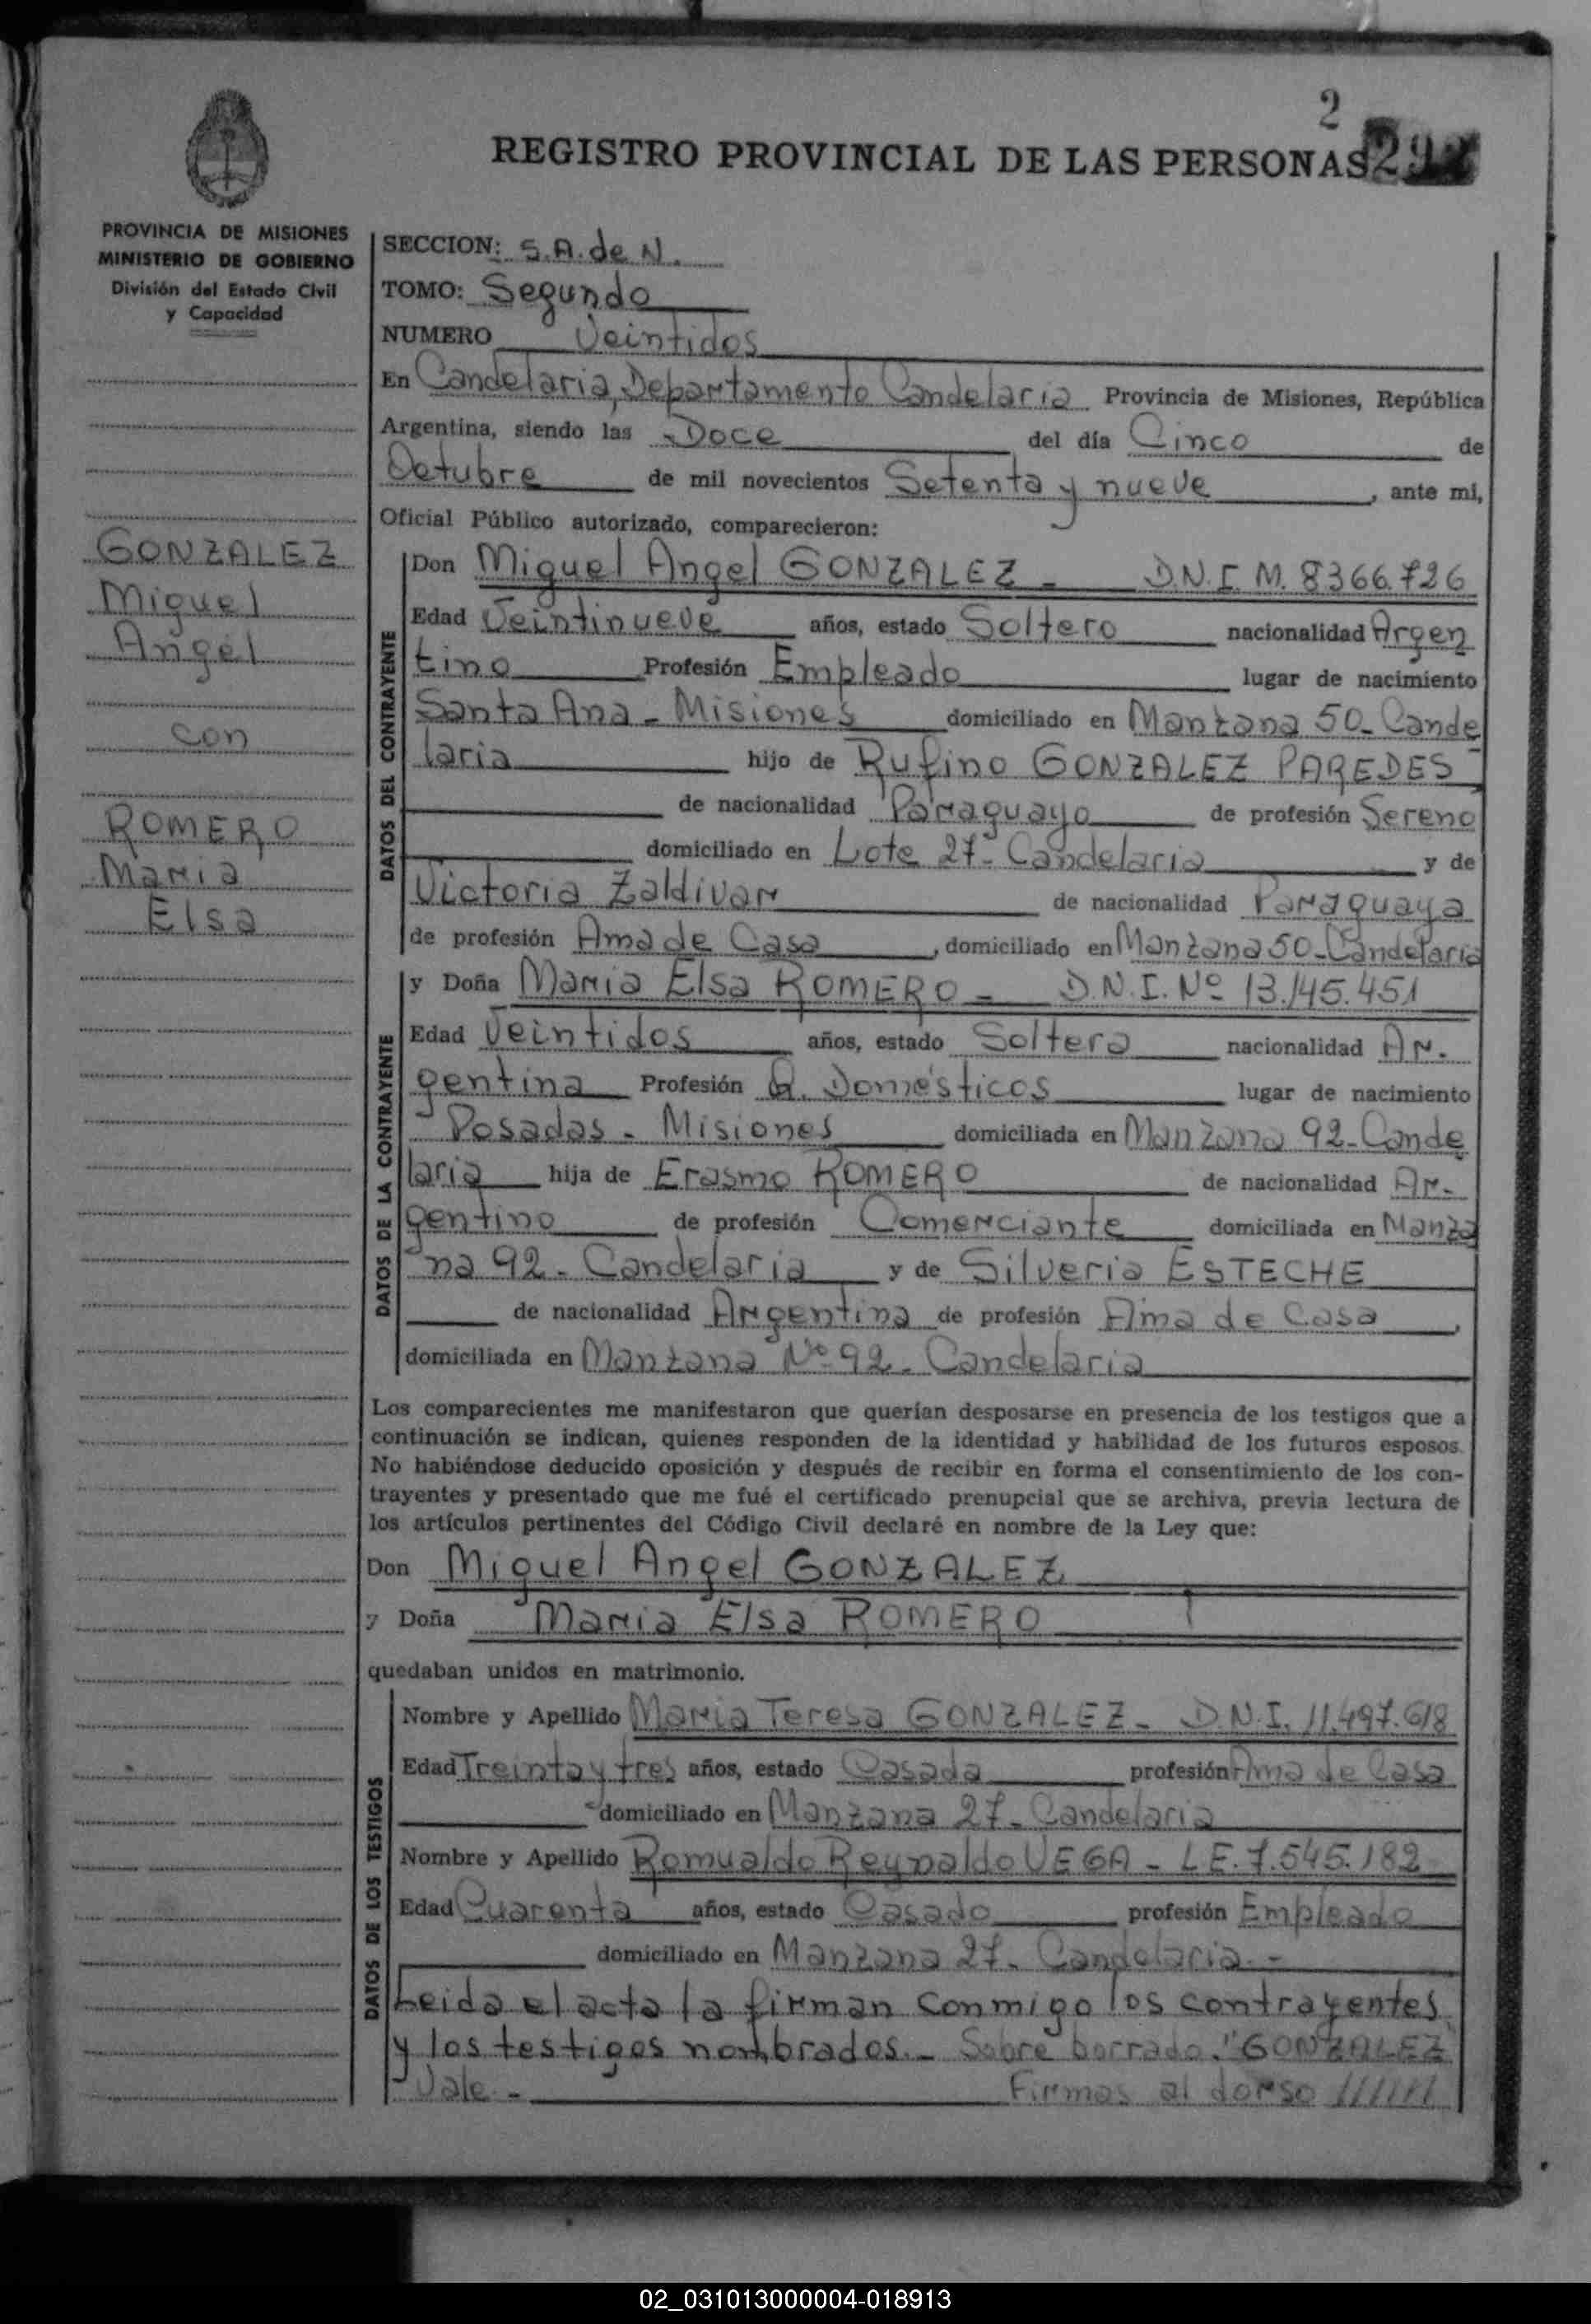 2
REGISTRO PROVINCIAL DE LAS PERSONAS
PROVINCIA DE MISIONES
MINISTERIO DE GOBIERNO
División del Estado Civil
y Capacidad
GONZALEZ
Miguel
Angel
con
ROMERO
Maria
Elsa
SECCION: S.A. de N.
TOMO: Segundo
NUMERO Veintidos
En Candelaria, Departamento Candelaria Provincia de Misiones, República
Argentina, siendo las Doce del día Cinco de
Octubre de mil novecientos Setenta y nueve, ante mí,
Oficial Público autorizado, comparecieron:
DATOS DEL CONTRAYENTE
Don Miguel Angel GONZALEZ - D.N.I. M. 8366.726
Edad Veintinueve años, estado Soltero nacionalidad Argen
tino Profesión Empleado lugar de nacimiento
Santa Ana - Misiones domiciliado en Manzana 50- Cande
laria hijo de Rufino GONZALEZ PAREDES
de nacionalidad Paraguayo de profesión Sereno
domiciliado en Lote 27- Candelaria y de
Victoria Zaldivar de nacionalidad Paraguaya
de profesión Ama de Casa, domiciliado en Manzana 50-Candelaria
DATOS DE LA CONTRAYENTE
y Doña Maria Elsa ROMERO - D.N.I. Nº 13.145.451
Edad Veintidos años, estado Soltera nacionalidad Ar-
gentina Profesión Q. Domésticos lugar de nacimiento
Posadas - Misiones domiciliada en Manzana 92- Cande
laria hija de Erasmo ROMERO de nacionalidad Ar-
gentino de profesión Comerciante domiciliada en Manza
na 92 - Candelaria y de Silveria ESTECHE
de nacionalidad Argentina de profesión Ama de Casa,
domiciliada en Manzana Nº 92 - Candelaria
Los comparecientes me manifestaron que querían desposarse en presencia de los testigos que a
continuación se indican, quienes responden de la identidad y habilidad de los futuros esposos.
No habiéndose deducido oposición y después de recibir en forma el consentimiento de los con-
trayentes y presentado que me fué el certificado prenupcial que se archiva, previa lectura de
los artículos pertinentes del Código Civil declaré en nombre de la Ley que:
Don Miguel Angel GONZALEZ
y Doña Maria Elsa ROMERO
quedaban unidos en matrimonio.
DATOS DE LOS TESTIGOS
Nombre y Apellido Maria Teresa GONZALEZ - D.N.I. 11.497.618
Edad Treinta y tres años, estado Casada profesión Ama de Casa
domiciliado en Manzana 27- Candelaria
Nombre y Apellido Romualdo Reynaldo VEGA - L.E. 7.545.182
Edad Cuarenta años, estado Casado profesión Empleado
domiciliado en Manzana 27- Candelaria -
Leida el acta la firman conmigo los contrayentes
y los testigos nombrados.- Sobre borrado: "GONZALEZ"
Vale - Firmas al dorso ///////
02_031013000004-018913